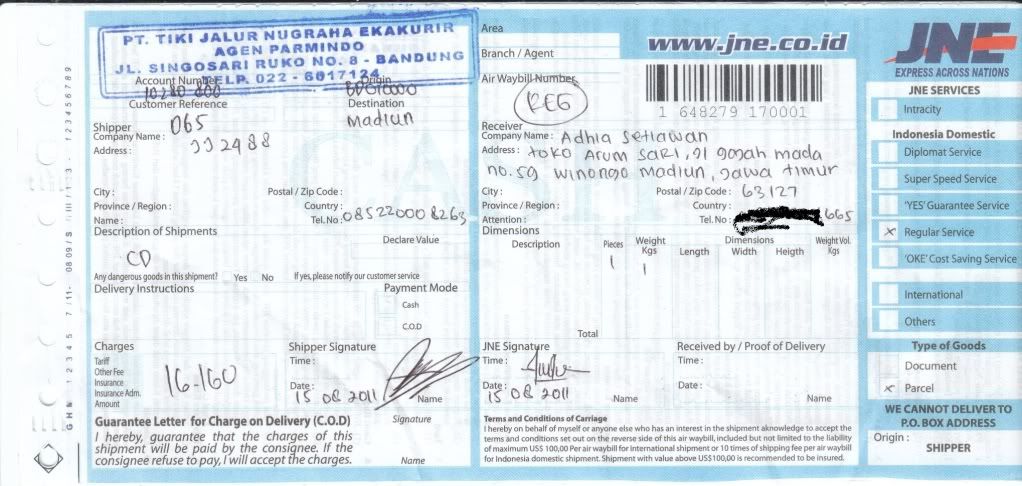 PT. TIKI JALUR NUGRAHA EKAKURIR
AGEN PARMINDO
JL. SINGOSARI RUKO NO. 8 - BANDUNG
TELP. 022 - 6017124
Account Number
Origin
Customer Reference
Destination
Madiun
Shipper
065
Company Name :
Address :
City :
Postal / Zip Code :
Province / Region :
Country :
Name :
Tel.No :
Description of Shipments
Declare Value
CD
Any dangerous goods in this shipment? Yes No If yes, please notify our customer service
Delivery Instructions
Payment Mode
Cash
C.O.D
Charges
Tariff
Other Fee
Insurance
Insurance Adm.
Amount
16.160
Shipper Signature
Time :
Date : 15 08 2011
Name
Guarantee Letter for Charge on Delivery (C.O.D)
I hereby, guarantee that the charges of this
shipment will be paid by the consignee. If the
consignee refuse to pay, I will accept the charges.
Signature
Name
Area
Branch / Agent
Air Waybill Number
REG
www.jne.co.id
1 648279 170001
Receiver
Company Name : Adhia Setiawan
Address : toko Arum SARI, Jl gajah mada
no. 59 winongo Madiun, Jawa timur
City :
Postal / Zip Code : 63127
Province / Region :
Country :
Attention :
Tel. No : 665
Dimensions
Description
Pieces
Weight
Kgs
Length
Dimensions
Width
Heigth
Weight Vol.
Kgs
1
1
Total
JNE Signature
Time :
Date : 15 08 2011
Name
Received by / Proof of Delivery
Time :
Date :
Name
Terms and Conditions of Carriage
I hereby on behalf of myself or anyone else who has an interest in the shipment aknowledge to accept the
terms and conditions set out on the reverse side of this air waybill, included but not limited to the liability
of maximum US$ 100,00 Per air waybill for international shipment or 10 times of shipping fee per air waybill
for Indonesia domestic shipment. Shipment with value above US$100,00 is recommended to be insured.
JNE
EXPRESS ACROSS NATIONS
JNE SERVICES
Intracity
Indonesia Domestic
Diplomat Service
Super Speed Service
'YES' Guarantee Service
x Regular Service
'OKE' Cost Saving Service
International
Others
Type of Goods
Document
x Parcel
WE CANNOT DELIVER TO
P.O. BOX ADDRESS
Origin :
SHIPPER